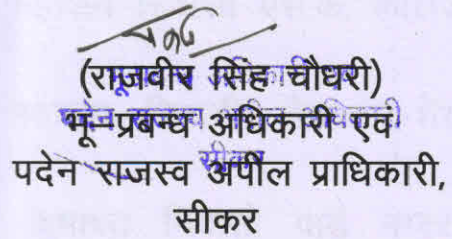 (राजवीर सिंह चौधरी)
भू-प्रबन्ध अधिकारी एवं
पदेन राजस्व अपील प्राधिकारी,
सीकर
सीकर